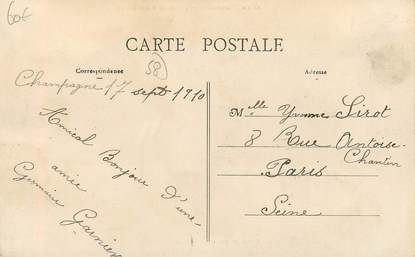 60f
CARTE POSTALE
Correspondance
58
Adresse
Champagne 17 sept 1910
Amical Bonjour d'une
amie
Germaine Garnier
Mlle Yvonne Sirot
8 Rue Antoise-
Chantin
Paris
Seine